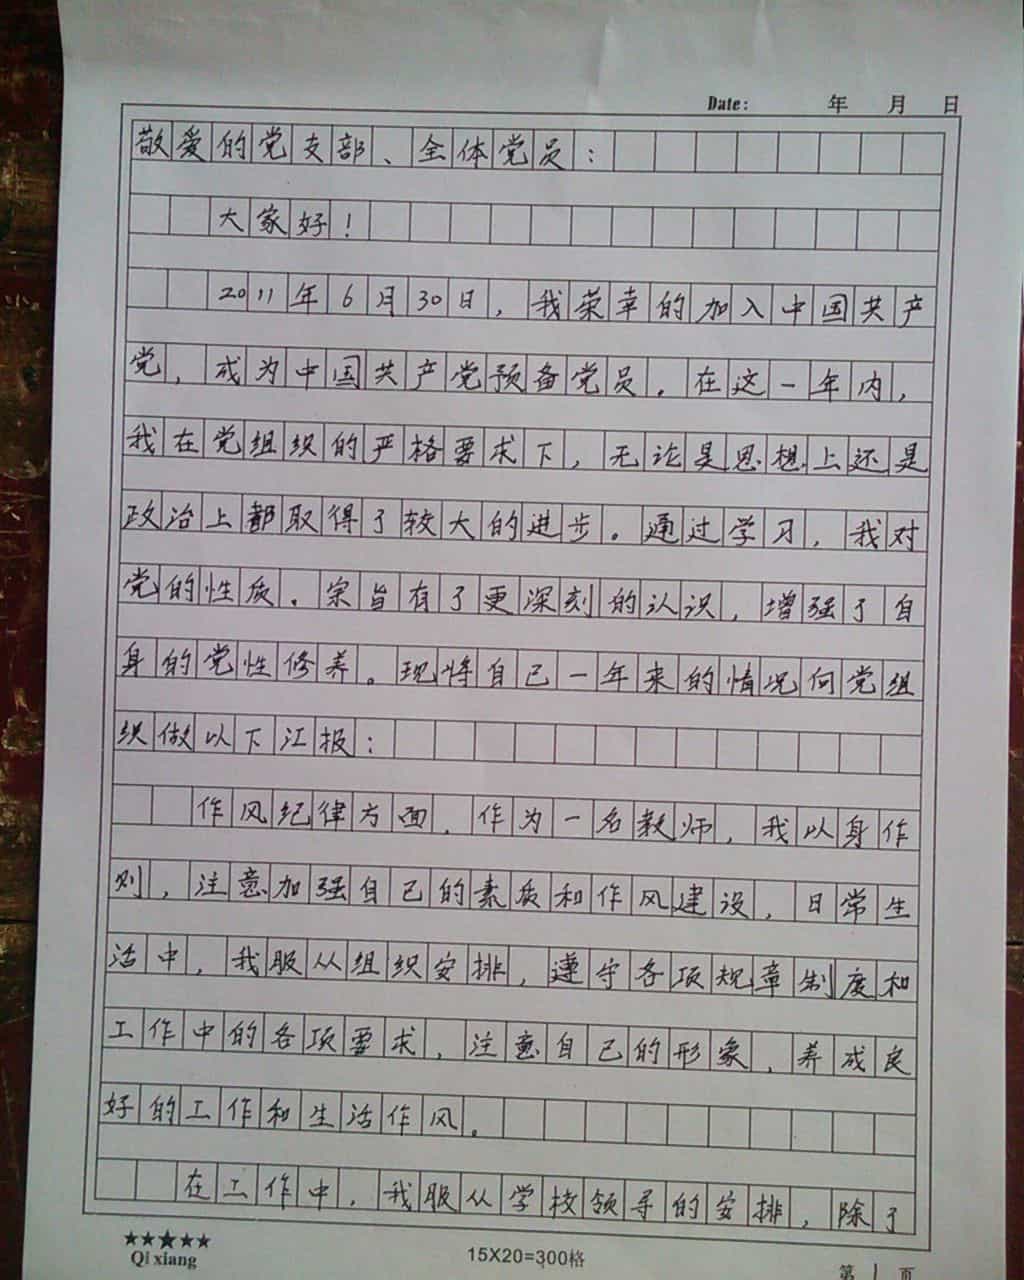 Date: 年 月 日
敬爱的党支部、全体党员：
大家好！
2011年6月30日，我荣幸的加入中国共产
党，成为中国共产党预备党员。在这一年内，
我在党组织的严格要求下，无论是思想上还是
政治上都取得了较大的进步。通过学习，我对
党的性质、宗旨有了更深刻的认识，增强了自
身的党性修养。现将自己一年来的情况向党组
织做以下江报：
作风纪律方面，作为一名教师，我以身作
则，注意加强自己的素质和作风建设，日常生
活中，我服从组织安排，遵守各项规章制度和
工作中的各项要求，注意自己的形象，养成良
好的工作和生活作风。
在工作中，我服从学校领导的安排，除了
★★★★★
Qi xiang
15X20=300格
第 1 页